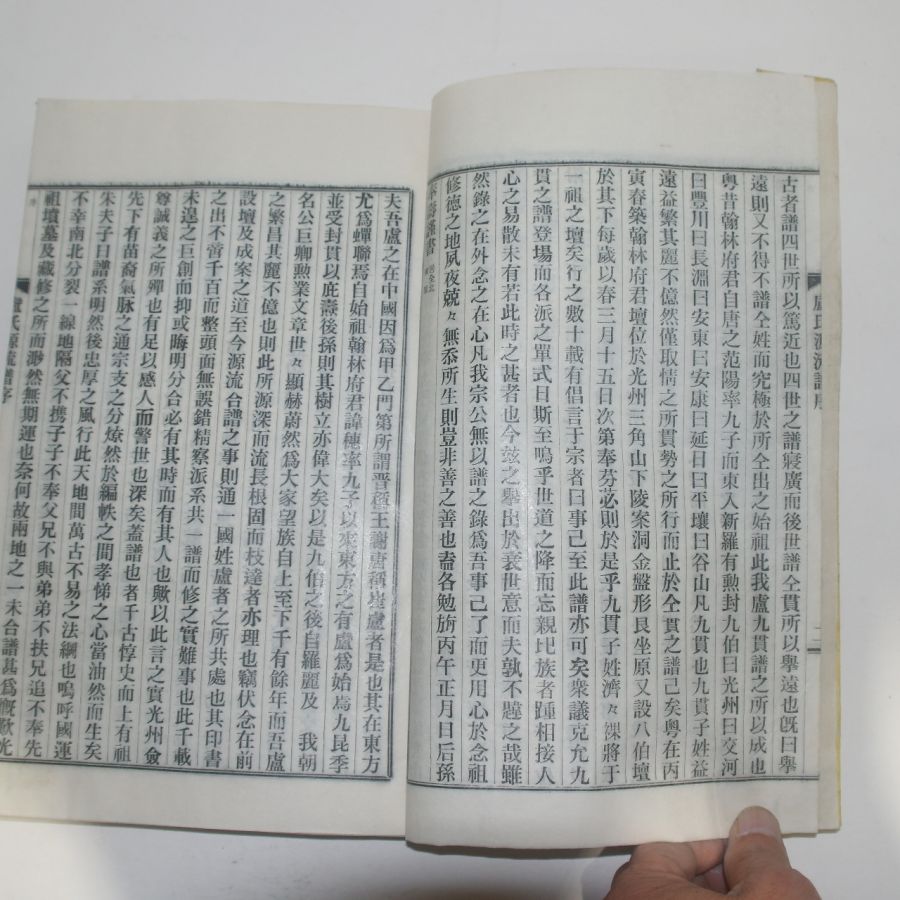 古者譜四世所以篤近也四世之譜寢廣而後世譜仝貫所以擧遠也旣曰擧
遠則又不得不譜仝姓而究極於所仝出之始祖此我盧九貫譜之所以成也
粤昔翰林府君自唐之范陽率九子而東入新羅有勳封九伯曰光州曰交河
曰豐川曰長淵曰安東曰安康曰延日曰平壤曰谷山凡九貫也九貫子姓益
遠益繁其麗不億然僅取情之所貫勢之所行而止於仝貫之譜已矣粤在丙
寅春築翰林府君壇位於光州三角山下陵案洞金盤形艮坐原又設八伯壇
於其下每歲以春三月十五日次第奉芬苾則於是乎九貫子姓濟々祼將于
一祖之壇矣行之數十載有倡言于宗者曰事已至此譜亦可矣衆議克允九
貫之譜登場而各派之單式日斯至嗚乎世道之降而忘親圮族者踵相接人
心之易散未有若此時之甚者也今玆之擧出於衰世意而夫孰不韙之哉雖
然錄之在外念之在心凡我宗公無以譜之錄爲吾事已了而更用心於念祖
修德之地夙夜兢々無忝所生則豈非善之善也盍各勉旃丙午正月日后孫
謹書
盧氏源流譜序
二
夫吾盧之在中國因爲甲乙門第所謂晋稱王謝唐稱崔盧者是也其在東方
尤爲蟬聯焉自始祖翰林府君諱穗率九子以來東方之有盧爲始焉九昆季
並受封貫以庇壽後孫則其樹立亦偉大矣以是九伯之後自羅麗及 我朝
名公巨卿勳業文章世々顯赫蔚然爲大家望族自上至下千有餘年而吾盧
之繁昌其麗不億也則此所源深而流長根固而枝達者亦理也竊伏念在前
設壇及成案之道至今源流合譜之事則通一國姓盧者之所共處也其印書
之出不啻千百而整頭面無誤錯精察派系共一譜而修之實難事也此千載
未遑之巨創而抑或晦明分合必有其時而有其人也歟以此言之實光州僉
尊誠義之所殫也有足以感人而警世也深矣蓋譜也者千古惇史而上有祖
先下有苗裔氣脉之通宗支之分燎然於編帙之間孝悌之心當油然而生矣
朱夫子曰譜系明然後忠厚之風行此天地間萬古不易之法綱也嗚呼國運
不幸南北分裂一線地隔父不携子子不奉父兄不與弟弟不扶兄追不奉先
祖墳墓及藏修之所而渺然無期運也奈何故兩地之一未合譜甚爲慨歎光
盧氏源流譜序